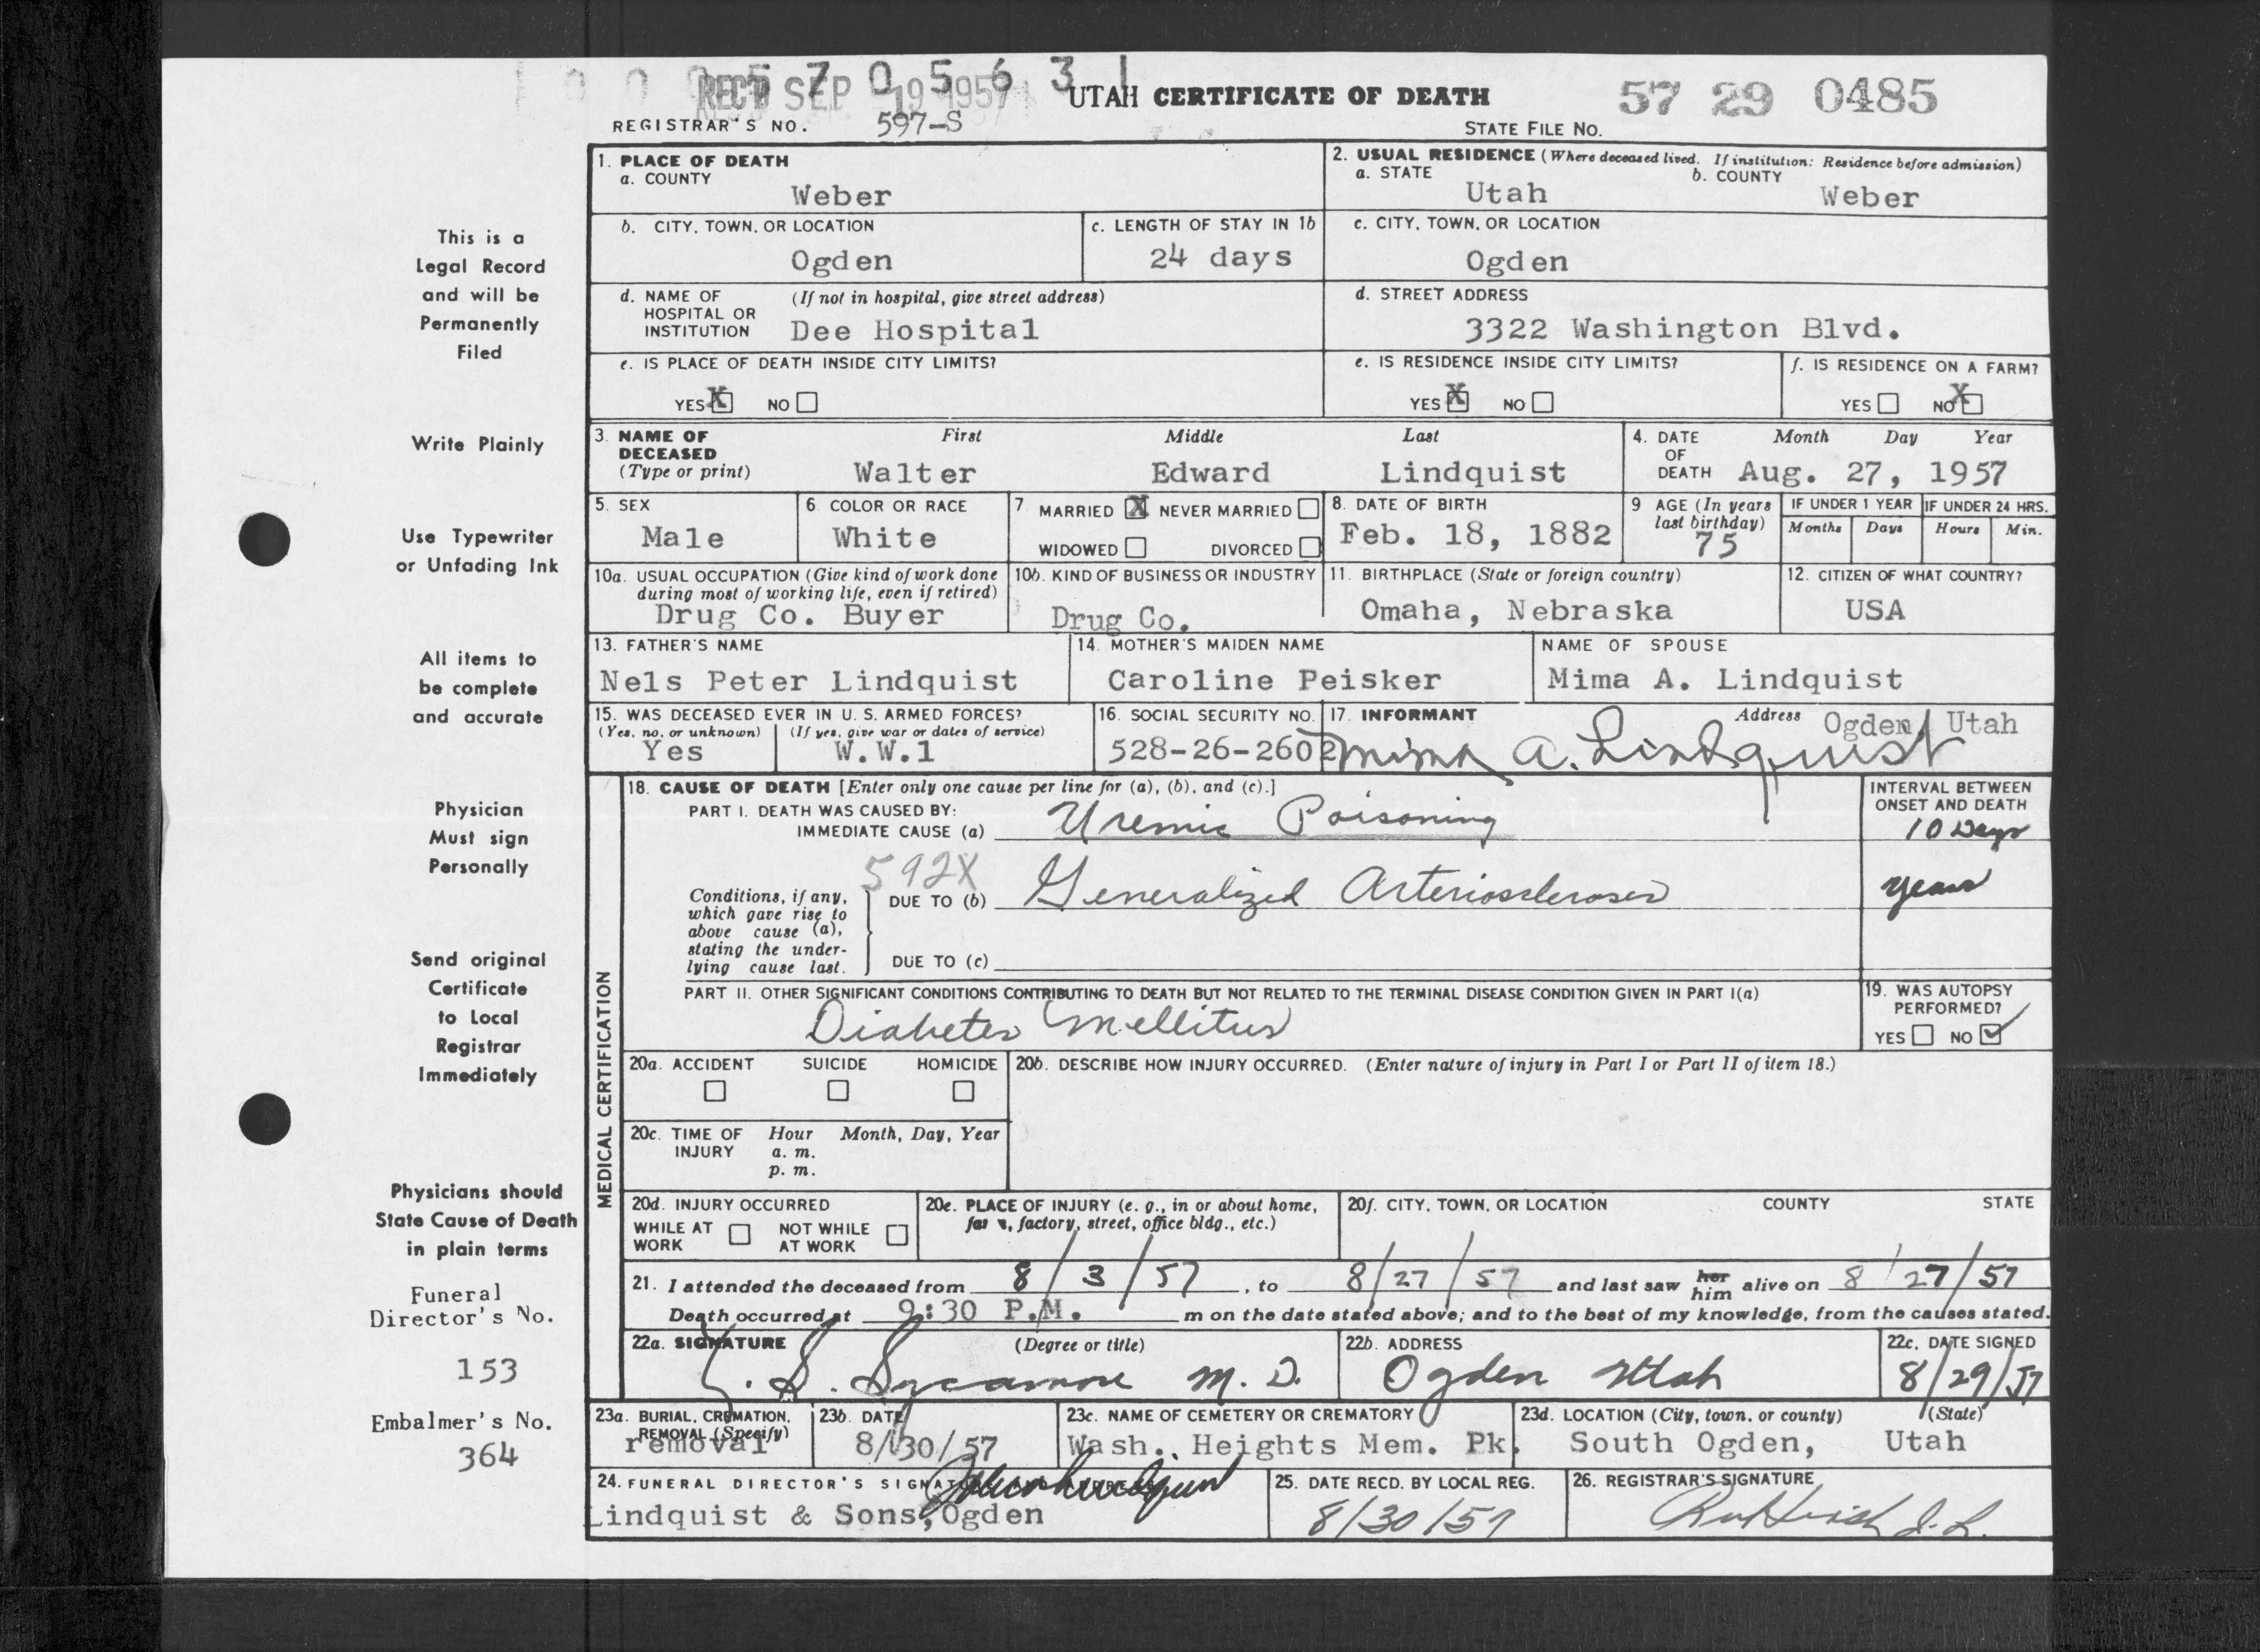 1 0 0 0 5 7 0 5 6 3 1
REC'D SEP 19 1957
UTAH CERTIFICATE OF DEATH
57 29 0485
REGISTRAR'S NO. 597-S
STATE FILE NO.
1. PLACE OF DEATH
a. COUNTY
Weber
2. USUAL RESIDENCE (Where deceased lived. If institution: Residence before admission)
a. STATE b. COUNTY
Utah Weber
b. CITY, TOWN, OR LOCATION
Ogden
c. LENGTH OF STAY IN 1b
24 days
c. CITY, TOWN, OR LOCATION
Ogden
d. NAME OF (If not in hospital, give street address)
HOSPITAL OR
INSTITUTION Dee Hospital
d. STREET ADDRESS
3322 Washington Blvd.
e. IS PLACE OF DEATH INSIDE CITY LIMITS?
YES X NO
e. IS RESIDENCE INSIDE CITY LIMITS?
YES X NO
f. IS RESIDENCE ON A FARM?
YES NO X
3. NAME OF DECEASED (Type or print)
First Middle Last
Walter Edward Lindquist
4. DATE OF DEATH
Month Day Year
Aug. 27, 1957
5. SEX
Male
6 COLOR OR RACE
White
7 MARRIED X NEVER MARRIED
WIDOWED DIVORCED
8. DATE OF BIRTH
Feb. 18, 1882
9 AGE (In years last birthday)
75
IF UNDER 1 YEAR IF UNDER 24 HRS.
Months Days Hours Min.
10a. USUAL OCCUPATION (Give kind of work done
during most of working life, even if retired)
Drug Co. Buyer
10b. KIND OF BUSINESS OR INDUSTRY
Drug Co.
11. BIRTHPLACE (State or foreign country)
Omaha, Nebraska
12. CITIZEN OF WHAT COUNTRY?
USA
13. FATHER'S NAME
Nels Peter Lindquist
14. MOTHER'S MAIDEN NAME
Caroline Peisker
NAME OF SPOUSE
Mima A. Lindquist
15. WAS DECEASED EVER IN U. S. ARMED FORCES?
(Yes, no, or unknown) (If yes, give war or dates of service)
Yes W.W.1
16. SOCIAL SECURITY NO.
528-26-2602
17. INFORMANT Address Ogden, Utah
Mima A. Lindquist
MEDICAL CERTIFICATION
18. CAUSE OF DEATH [Enter only one cause per line for (a), (b), and (c).]
PART I. DEATH WAS CAUSED BY:
IMMEDIATE CAUSE (a) Uremic Poisoning
INTERVAL BETWEEN
ONSET AND DEATH
10 Days
592X
Conditions, if any,
which gave rise to
above cause (a),
stating the under-
lying cause last.
DUE TO (b) Generalized Arteriosclerosis
years
DUE TO (c)
PART II. OTHER SIGNIFICANT CONDITIONS CONTRIBUTING TO DEATH BUT NOT RELATED TO THE TERMINAL DISEASE CONDITION GIVEN IN PART I(a)
Diabetes Mellitus
19. WAS AUTOPSY
PERFORMED?
YES NO ✓
20a. ACCIDENT SUICIDE HOMICIDE
20b. DESCRIBE HOW INJURY OCCURRED. (Enter nature of injury in Part I or Part II of item 18.)
20c. TIME OF INJURY
Hour Month, Day, Year
a. m.
p. m.
20d. INJURY OCCURRED
WHILE AT WORK NOT WHILE AT WORK
20e. PLACE OF INJURY (e. g., in or about home,
farm, factory, street, office bldg., etc.)
20f. CITY, TOWN, OR LOCATION COUNTY STATE
21. I attended the deceased from 8/3/57, to 8/27/57 and last saw her him alive on 8/27/57
Death occurred at 9:30 P.M. m on the date stated above; and to the best of my knowledge, from the causes stated.
22a. SIGNATURE (Degree or title)
Sycamore M. D.
22b. ADDRESS
Ogden Utah
22c. DATE SIGNED
8/29/57
23a. BURIAL, CREMATION,
REMOVAL (Specify)
removal
23b. DATE
8/30/57
23c. NAME OF CEMETERY OR CREMATORY
Wash. Heights Mem. Pk.
23d. LOCATION (City, town, or county) (State)
South Ogden, Utah
24. FUNERAL DIRECTOR'S SIGNATURE
Lindquist & Sons, Ogden
25. DATE RECD. BY LOCAL REG.
8/30/57
26. REGISTRAR'S SIGNATURE
This is a
Legal Record
and will be
Permanently
Filed
Write Plainly
Use Typewriter
or Unfading Ink
All items to
be complete
and accurate
Physician
Must sign
Personally
Send original
Certificate
to Local
Registrar
Immediately
Physicians should
State Cause of Death
in plain terms
Funeral
Director's No.
153
Embalmer's No.
364